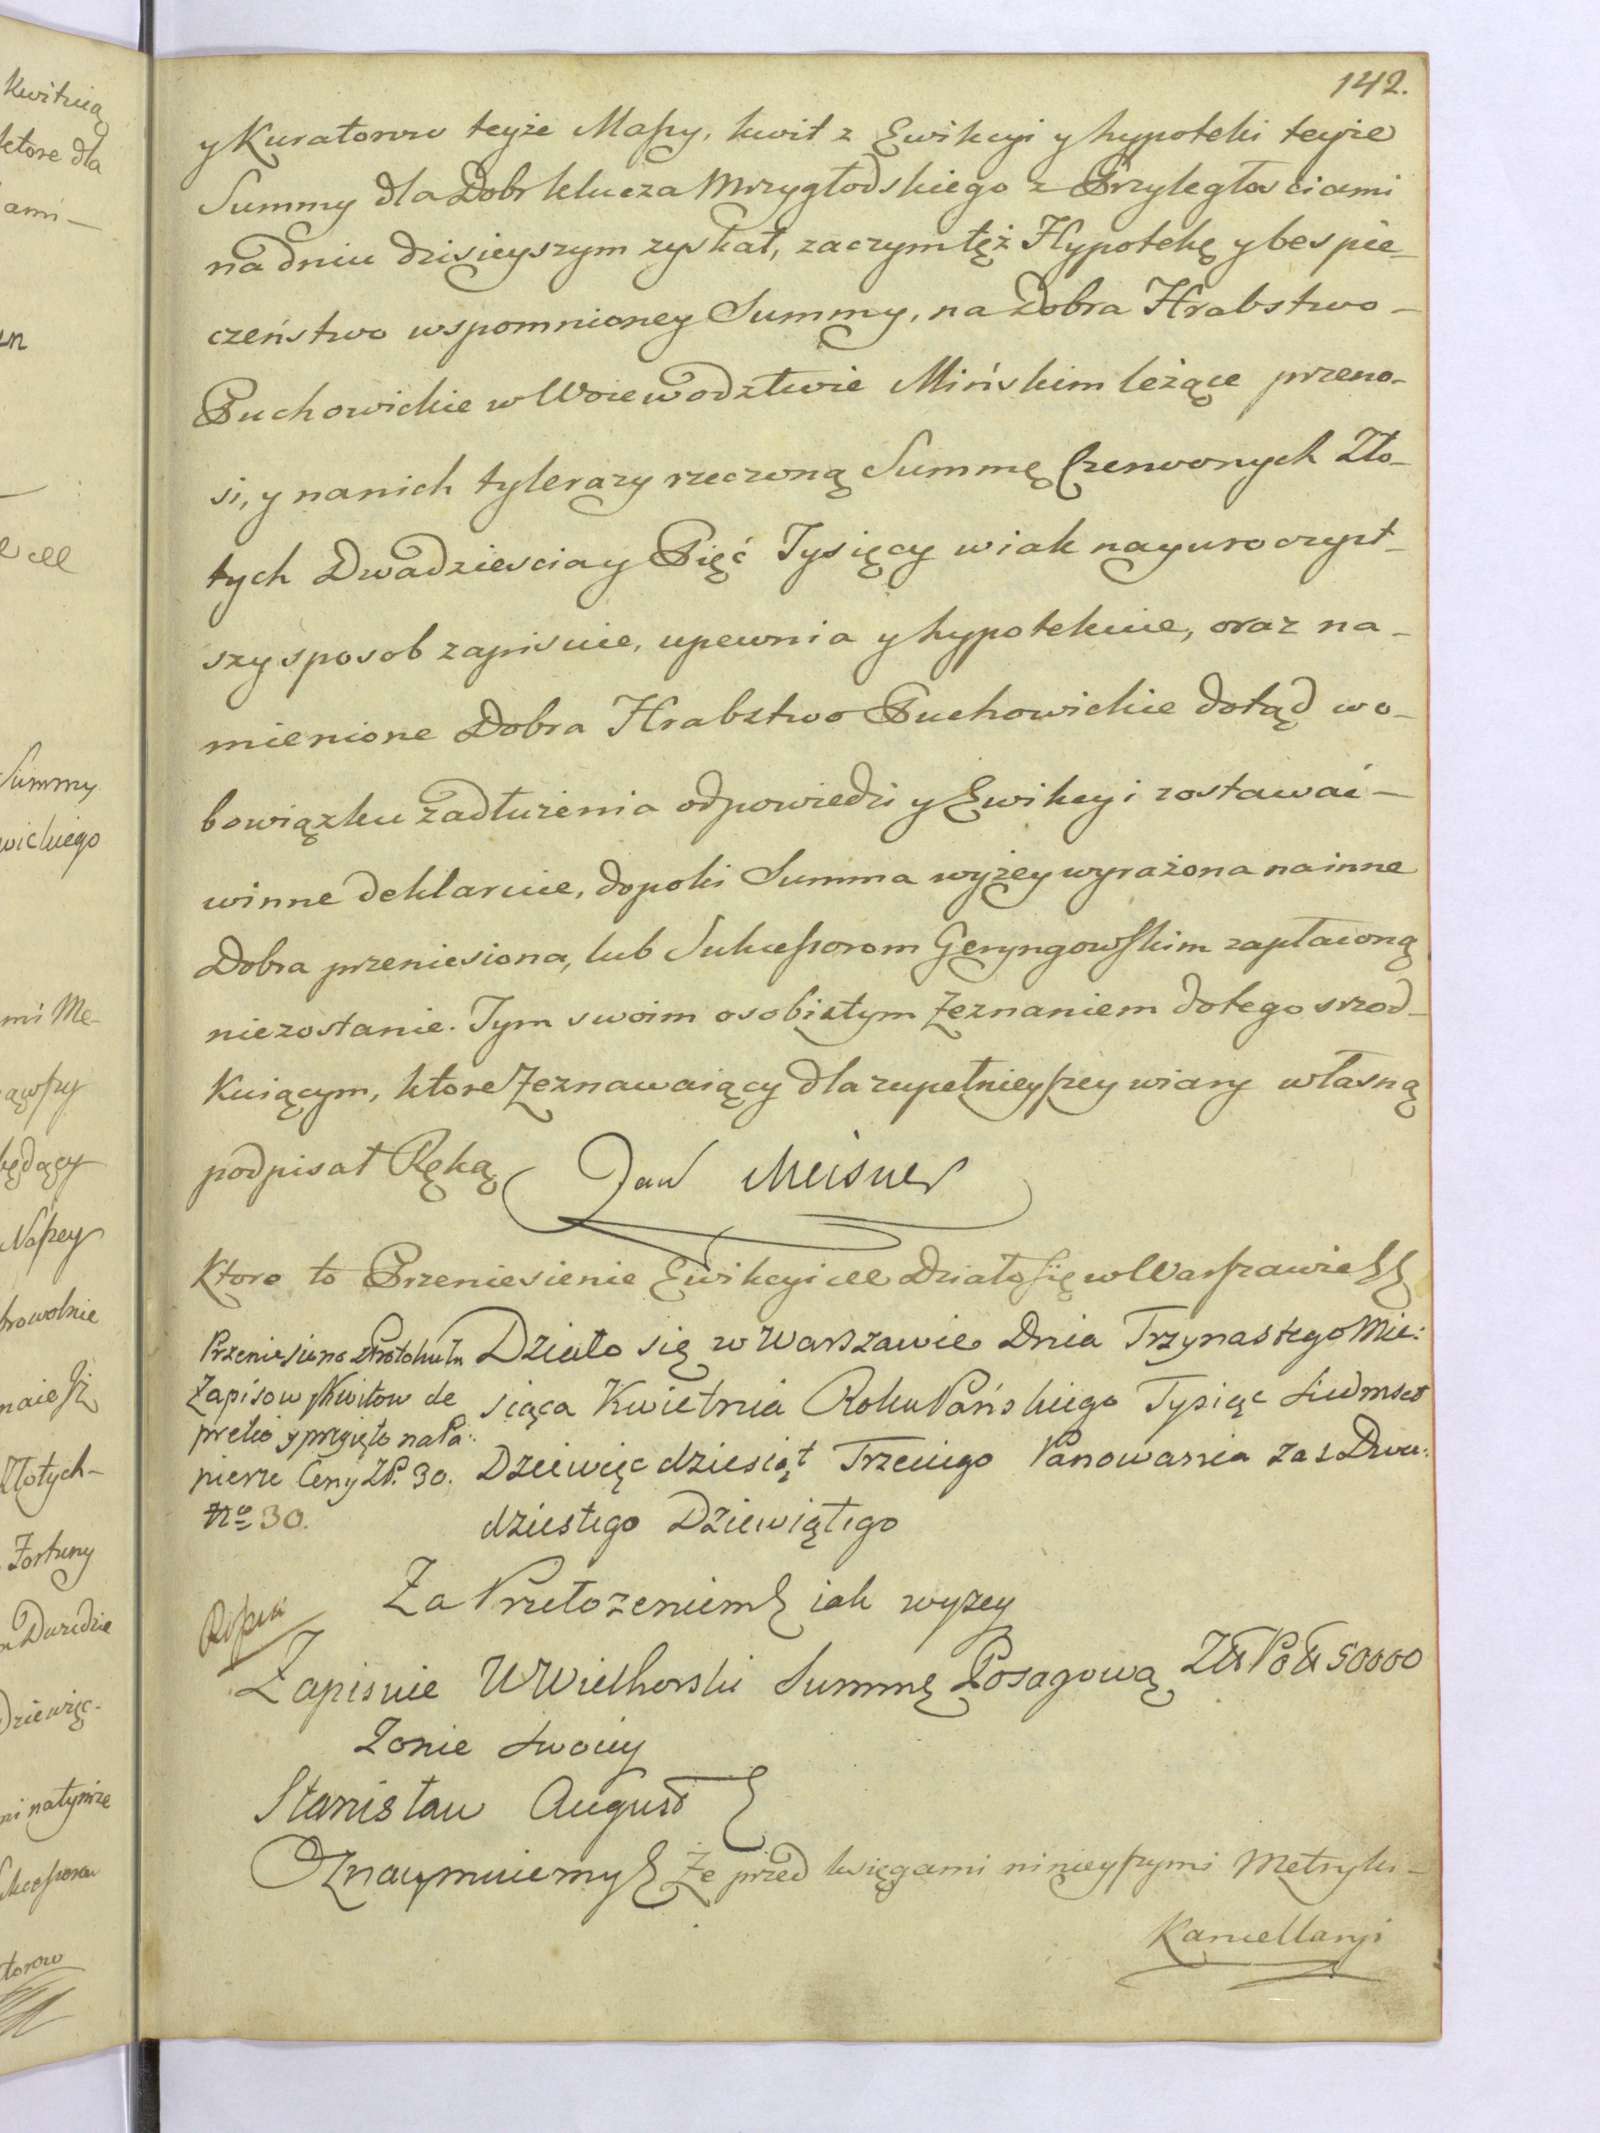 142.
y Kuratorow teyże Massy, kwit z Ewikcyi y hypoteki teyże
Summy dla Dobr klucza Mrzygłodskiego z Przyległościami
na dniu dzisieyszym zyskał, zaczym tęż Hypotekę y bespie-
czeństwo wspomnioney Summy, na Dobra Hrabstwo-
Puchowickie w Woiewodztwie Mińskim leżące przeno-
si, y na nich tylerazy rzeczoną Summę Czerwonych Zło-
tych Dwadziescia y Pięć Tysięcy w iak nayuroczyst-
szy sposob zapisuie, upewnia y hypotekuie, oraz na-
mienione Dobra Hrabstwo Puchowickie dotąd w o-
bowiązku zadłużenia odpowiedzi y Ewikcyi zostawać-
winne deklaruie, dopoki Summa wyżey wyrażona na inne
Dobra przeniesiona, lub Sukcessorom Geryngowskim zapłaconą
niezostanie. Tym swoim osobistym Zeznaniem do tego srzod-
kuiącym, ktore Zeznawaiący dla zupełnieyszey wiary własną
podpisał Ręką Jan Meisner
Ktore to Przeniesienie Ewikcyi etc Działo się w Warszawie
Przeniesiono z Protokułu
Zapisow y Kwitow de
pretio y przyięto na Pa:
pierze Ceny ZP. 30.
No 30.
Działo się w Warszawie Dnia Trzynastego Mie:
siąca Kwietnia Roku Pańskiego Tysiąc Siedmset
Dziewięcdziesiąt Trzeciego Panowania zas Dwu:
dziestego Dziewiątego
Za Przełozeniem iak wyzey
Zapisuie U Wielhorski Summę Posagową Złt Pol 50000
Zonie Swoiey
Stanisław August
Oznaymuiemy Ze przed księgami ninieyszymi Metryki-
Kancellaryi
Kwitują
ktore dla
ami-
Summy
wickiego
mi Me-
będący
Naszey
browolnie
Złotych-
Fortuny
Dziewięc-
ni natymże